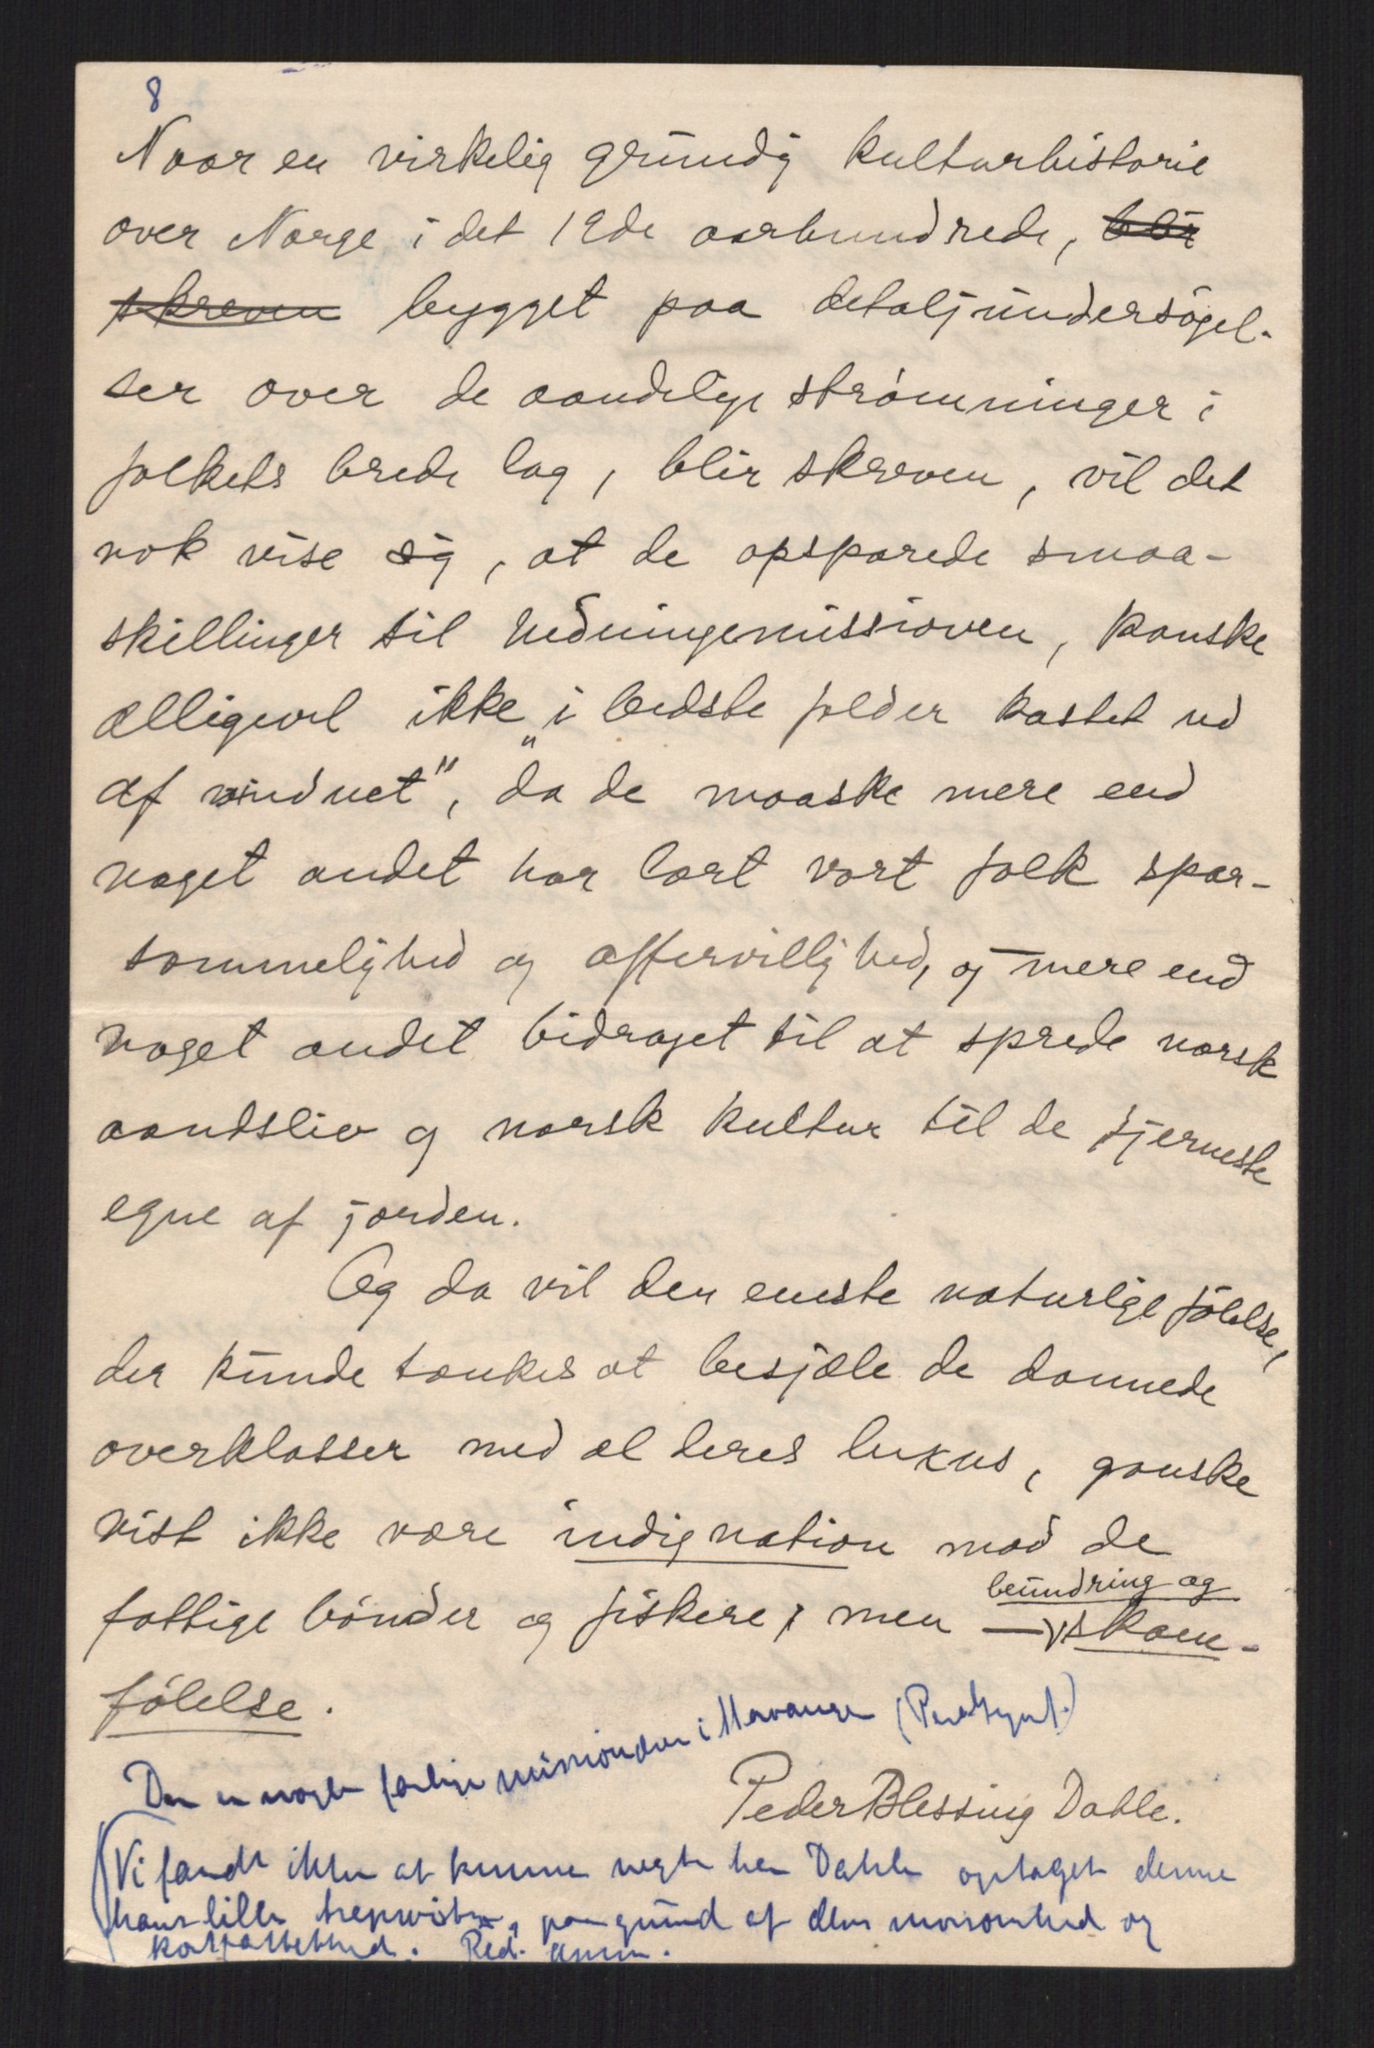 8
Naar en virkelig grundig kulturhistorie
over Norge i det 19de aarhundrede, blir
skreven bygget paa detaljundersøgel-
ser over de aandelige strømninger i
folkets brede lag, blir skreven, vil det
nok vise sig, at de opsparede smaa-
skillinger til hedningemissionen, kanske
alligevel ikke „i bedste folder kastet ud
af vinduet", da de maaske mere end
noget andet har lært vort folk spar-
sommelighed og offervillighed, og mere end
noget andet bidraget til at sprede norsk
aandsliv og norsk kultur til de fjerneste
egne af jorden.
Og da vil den eneste naturlige følelse,
der kunde tænkes at besjæle de dannede
overklasser med al deres luxus, ganske
vist ikke være indignation mod de
fattige bønder og fiskere, men —
beundring og
skam-
følelse.
Der er nogle farlige missionærer i Stavanger (Peer Gynt.)
Peder Blessing Dahle.
(Vi fandt ikke at kunne negte hr. Dahle optaget denne
hans lille, paa grund af dens morsomhed og
kortfattethed. Red. anm.